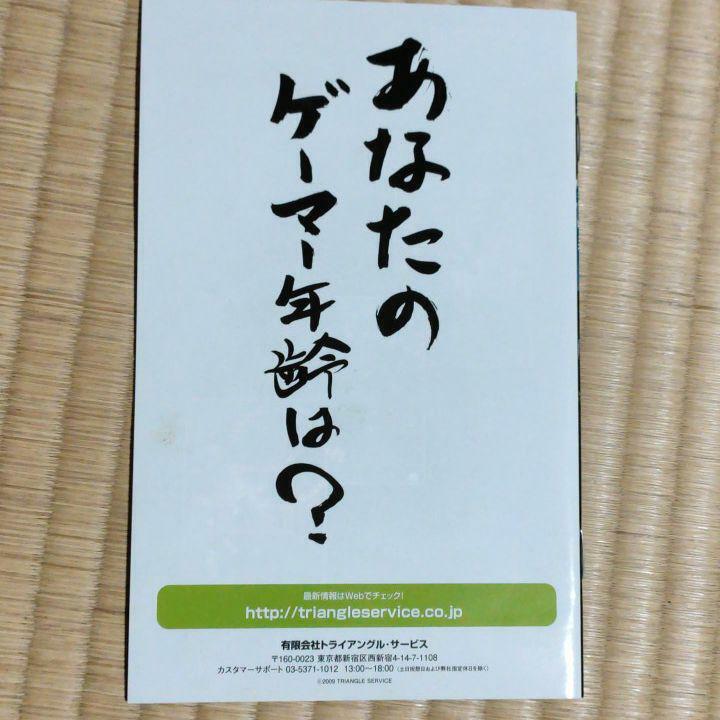 あなたの
ゲーマー年齢は?
最新情報はWebでチェック!
http://triangleservice.co.jp
有限会社トライアングル・サービス
〒160-0023 東京都新宿区西新宿4-14-7-1108
カスタマーサポート 03-5371-1012 13:00〜18:00 (土日祝祭日および弊社指定休日を除く)
©2009 TRIANGLE SERVICE